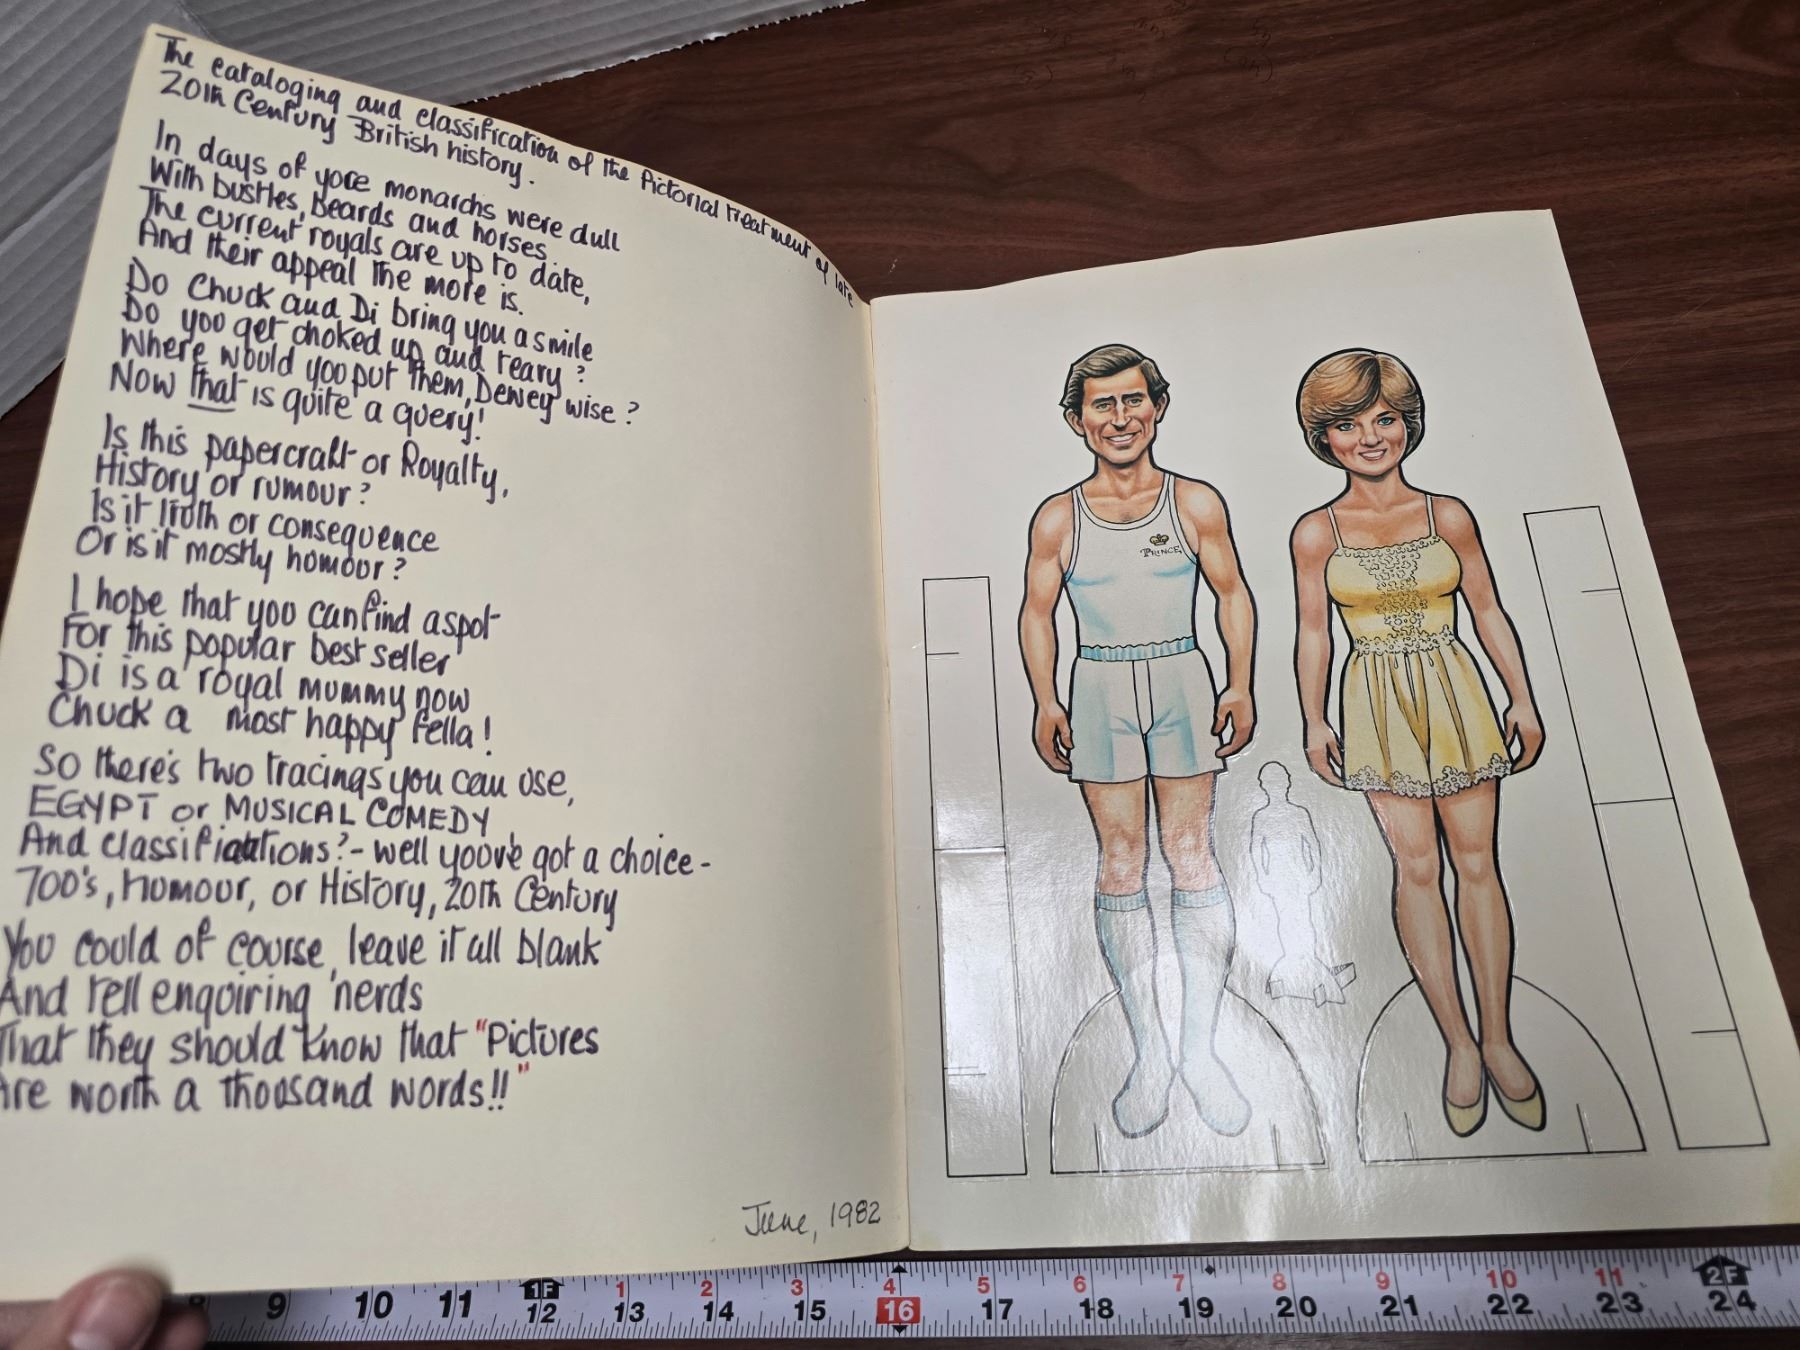 The cataloging and classification of the Pictorial treatment of late
20th Century British history.
In days of yore monarchs were dull
With bustles, beards and horses
The current royals are up to date,
And their appeal the more is.
Do Chuck and Di bring you a smile
Do you get choked up and teary?
Where would you put them, Dewey wise?
Now that is quite a query!
Is this papercraft or Royalty,
History or rumour?
Is it truth or consequence
Or is it mostly humour?
I hope that you can find a spot
For this popular best seller
Di is a royal mummy now
Chuck a most happy fella!
So there's two tracings you can use,
EGYPT or MUSICAL COMEDY
And classifications? - well you've got a choice -
700's, Humour, or History, 20th Century
You could of course, leave it all blank
And tell enquiring 'nerds
That they should know that "Pictures
Are worth a thousand words!!"
June, 1982
PRINCE
8 9 10 11 1F 12 1 13 2 14 3 15 4 16 5 17 6 18 7 19 8 20 9 21 10 22 11 23 2F 24